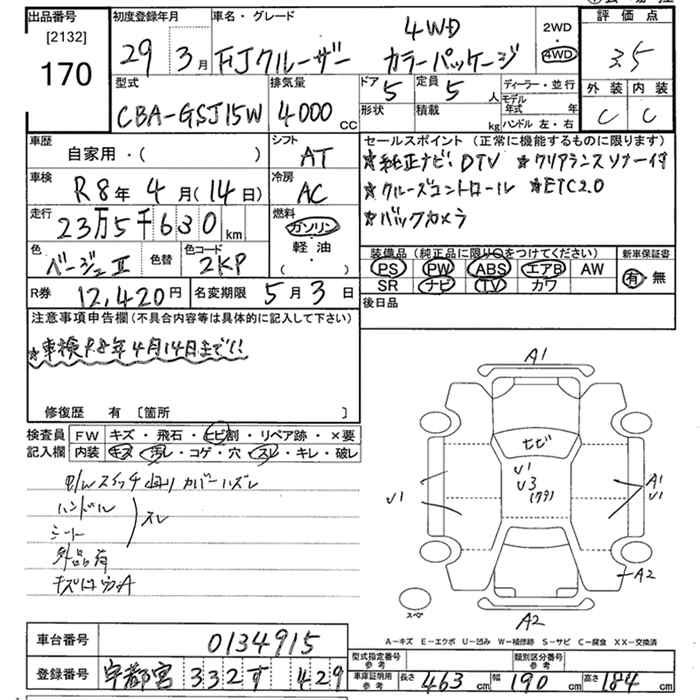 出品番号
[2132]
170
初度登録年月
29年3月
車名・グレード
FJクルーザー
4WD
カラーパッケージ
2WD
・
4WD
評価点
3.5
外装 内装
C C
型式
CBA-GSJ15W
排気量
4000 CC
ドア 5
形状
定員 5 人
積載 kg
ディーラー・並行
モデル年式 年
ハンドル 左・右
車歴
自家用・( )
シフト
AT
車検
R8年4月(14日)
冷房
AC
走行
23万5千630 km
燃料
ガソリン
軽油
( ・ )
色
ベージュⅡ
色替
色コード
2KP
R券 12,420円
名変期限 5月3日
セールスポイント (正常に機能するものに限ります)
★純正ナビ DTV ★クリアランスソナー付
★クルーズコントロール ★ETC2.0
★バックカメラ
装備品 (純正品に限り○をつけてください)
PS PW ABS エアB AW
SR ナビ TV カワ
新車保証書
有・無
後日品
注意事項申告欄 (不具合内容等は具体的に記入して下さい)
★車検R.8年4月14日まで!!
修復歴 有 [箇所 ]
検査員
記入欄
FW キズ・飛石・ヒビ割・リペア跡・×要
内装 キズ・汚レ・コゲ・穴・スレ・キレ・破レ
P/Wスイッチ廻り カバーハズレ
ハンドル
シート
スレ
外品有
A1
ヒビ
U1
U3
U1
A1
U1
A2
A2
スペア
A-キズ E-エクボ U-凹み W-補修跡 S-サビ C-腐食 XX-交換済
車台番号 0134915
登録番号 宇都宮 332 す 429
型式指定番号
参考
類別区分番号
参考
車庫証明用
参考
長さ 463 cm 幅 190 cm 高さ 184 cm